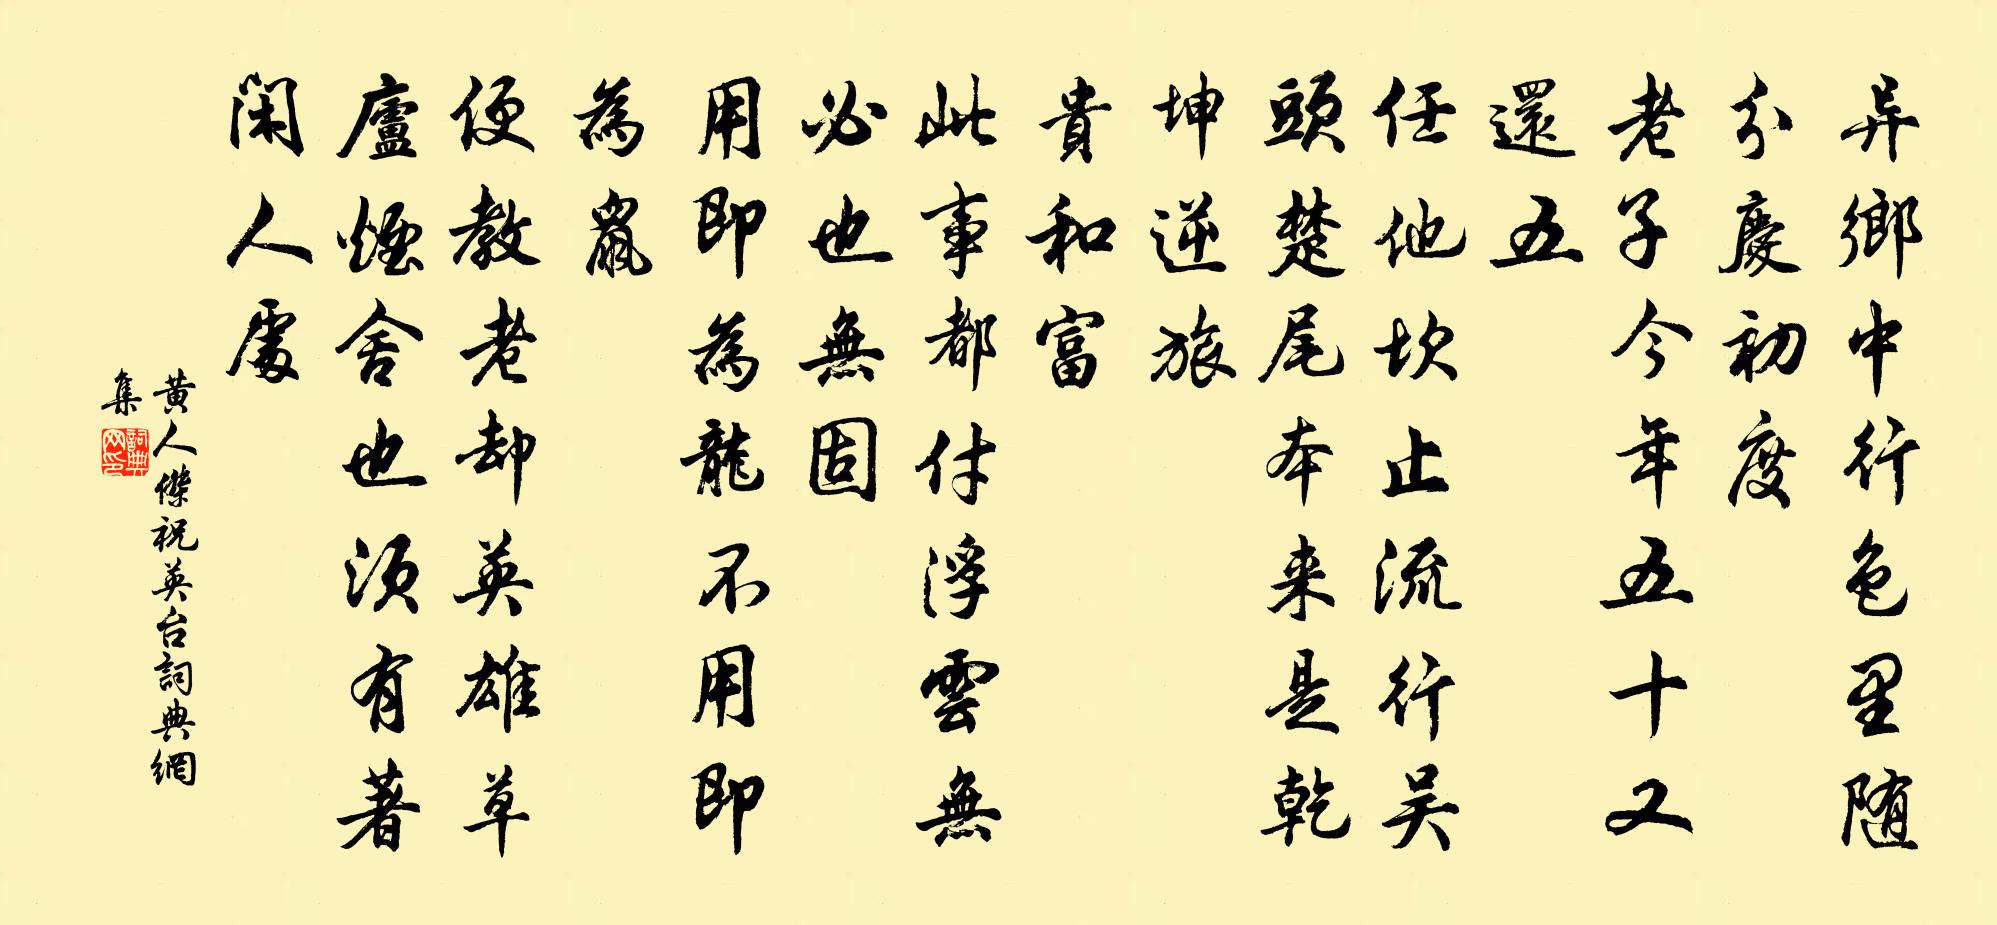 异鄉中行色里随
分慶初度
老子今年五十又
還五
任他坎止流行吴
頭楚尾本来是乾
坤逆旅
貴和富
此事都付浮雲無
必也無固
用即為龍不用即
為鼠
便教老却英雄草
廬煙舍也須有著
閑人處
黄人傑祝英台詞典網
集
詞典
网印